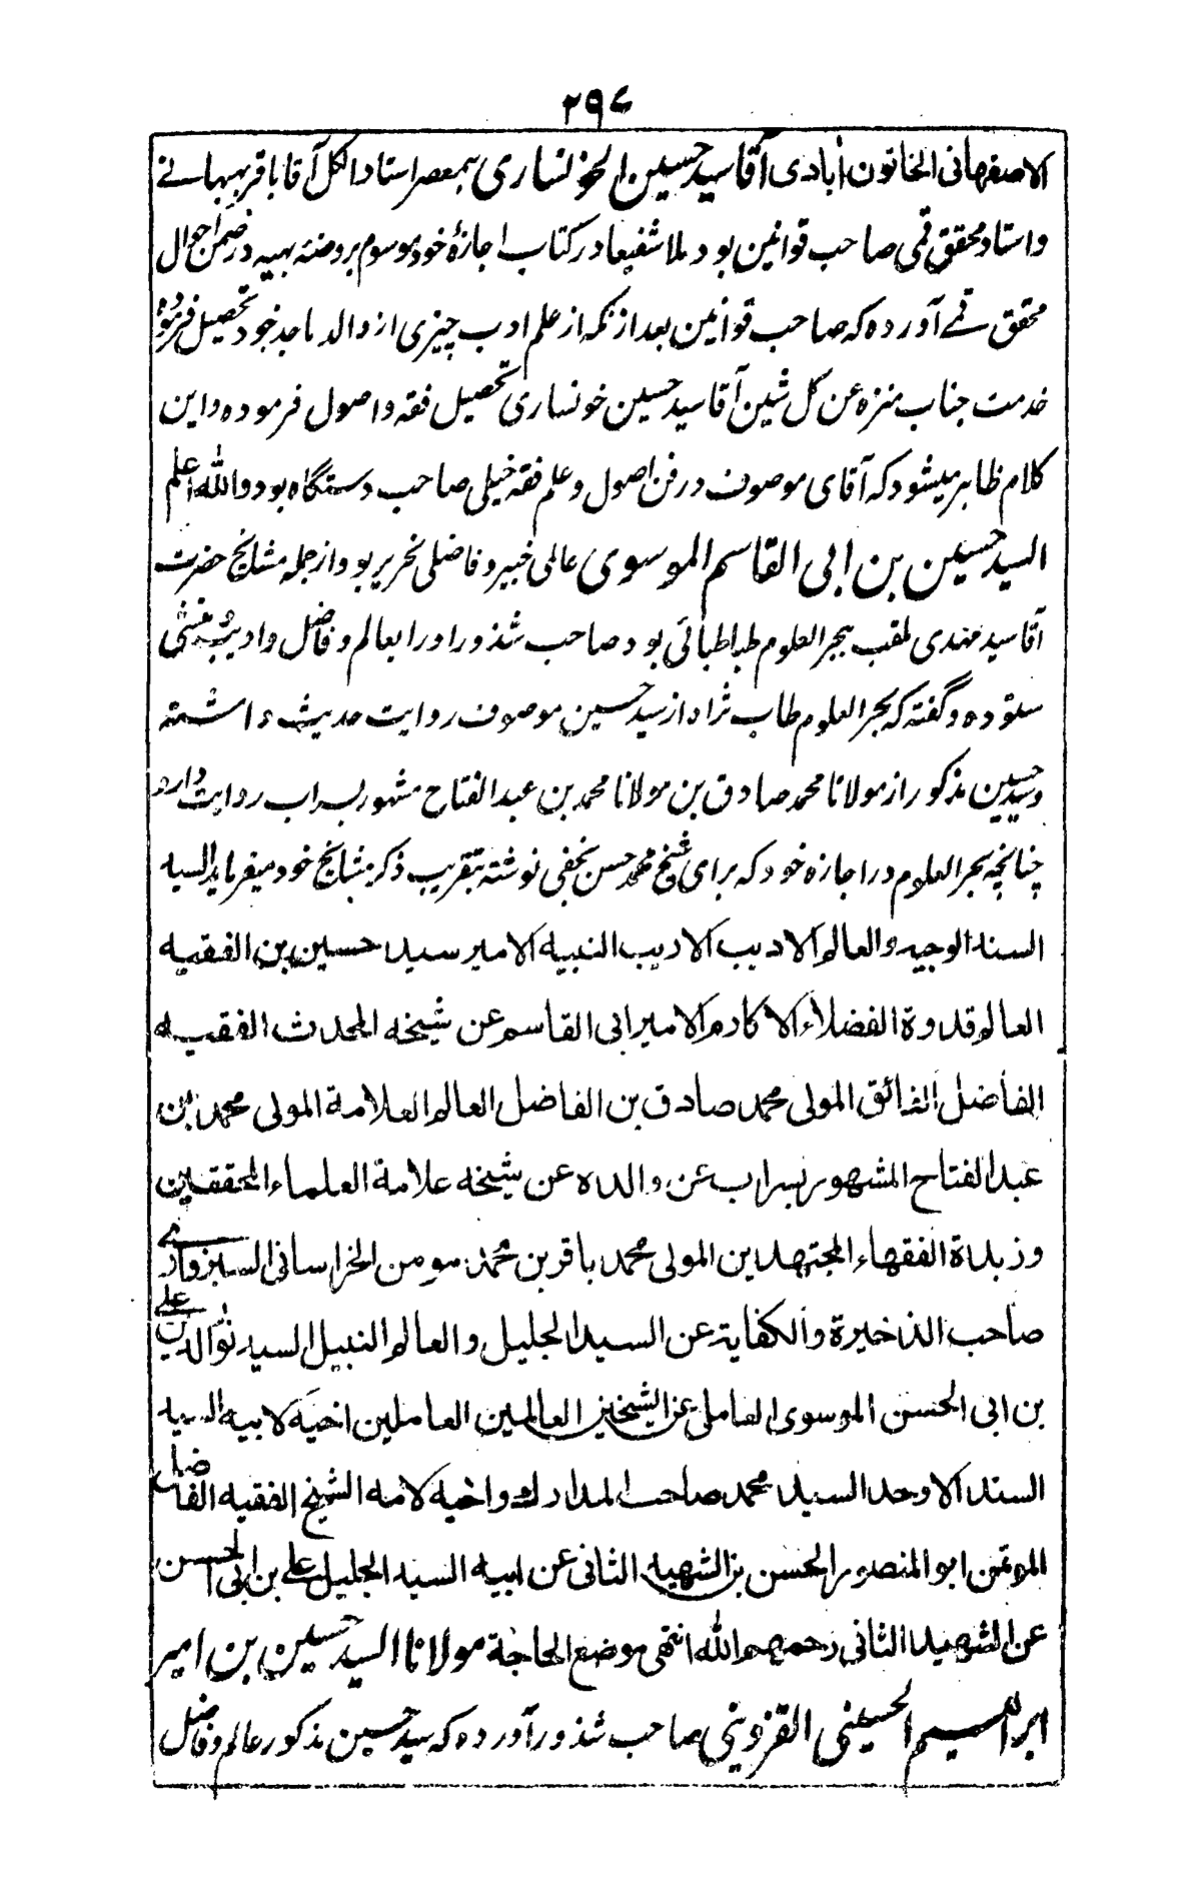 ۲۹۶
الاصفهانی الخاتون آبادی آقا سید حسین الخونساری همعصر استاد الکل آقا باقر بهبهانے
و استاد محقق قمی صاحب قوانین بود ملا شفیعا در کتاب اجازهٔ خود موسوم بروضۂ بهیه در ضمن احوال
محقق قمے آورده که صاحب قوانین بعد از نکه از علم ادب چیزی از والد ماجد خود تحصیل فرموده
خدمت جناب منزه عن کل شین آقا سید حسین خونساری تحصیل فقه و اصول فرموده و این
کلام ظاهر میشود که آقای موصوف در فن اصول و علم فقه خیلی صاحب دستگاه بود والله اعلم
السید حسین بن ابی القاسم الموسوی عالمی خبیر و فاضلی نحریر بود از جمله مشائخ حضرت
آقا سید مهدی ملقب ببحر العلوم طباطبائی بود صاحب شذور او را بعالم و فاضل و ادیب و منشی
ستوده و گفته که بحر العلوم طاب ثراه از سید حسین موصوف روایت حدیث داشته
و سید حسین مذکور از مولانا محمد صادق بن مولانا محمد بن عبد الفتاح مشهور بسراب روایت دارد
چنانچه بحر العلوم در اجازه خود که برای شیخ محمد حسن نجفی نوشته بتقریب ذکر مشائخ خود میفرماید السید
السند الوجیه والعالم الادیب الاریب النبیه الامیر سید حسین بن الفقیه
العالم قدوة الفضلاء الاکارم الامیر ابی القاسم عن شیخه المحدث الفقیه
الفاضل الفائق المولی محمد صادق بن الفاضل العالم العلامة المولی محمد بن
عبد الفتاح المشهور بسراب عن والده عن شیخه علامة العلماء المحققین
وزبدة الفقهاء المجتهدین المولی محمد باقر بن محمد مومن الخراسانی السبزواری
صاحب الذخیرة والکفایة عن السید الجلیل والعالم النبیل السید نور الدین علی
بن ابی الحسن الموسوی العاملی عن الشیخین العالمین العاملین اخیه لابیه السید
السند الاوحد السید محمد صاحب المدارك واخیه لامه الشیخ الفقیه الفاضل
المؤتمن ابو المنصور الحسن بن الشهید الثانی عن ابیه السید الجلیل علی بن ابی الحسن
عن الشهید الثانی رحمهم الله انتهی موضع الحاجة مولانا السید حسین بن امیر
ابراهیم الحسینی القزوینی صاحب شذور آورده که سید حسین مذکور عالم و فاضل